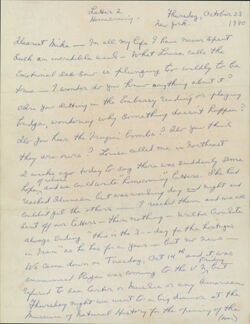 Letter 2
Homecoming
Thursday, October 23
New York 1980
Dearest Mike — In all my life I have never spent
such an incredible week — What Louise calls the
emotional see saw is plunging too wildly to be
borne — I wonder do you know anything about it?
Are you sitting in the Embassy reading or playing
bridge, wondering why something doesn't happen?
Do you hear the Iraqui bombs? Do you think
they are ours? Louise called me in Northeast
2 weeks ago today to say there was suddenly some
hope, and we could write "homecoming" letters. She had
reached Ann but was day and night and
couldn't get the others — I reached them and we
sent off our letters — then nothing — Walter Cronkite
always ending "This is the 3-- day for the hostages
in Iran" as he has for a year — but no news —
We came down on Tuesday, Oct 14th and it was
announced Rajai was coming to the U.N. but
refused to see Carter or Muskie or any American
Thursday night we went to a big dinner at the
Museum of Natural History for the opening of the